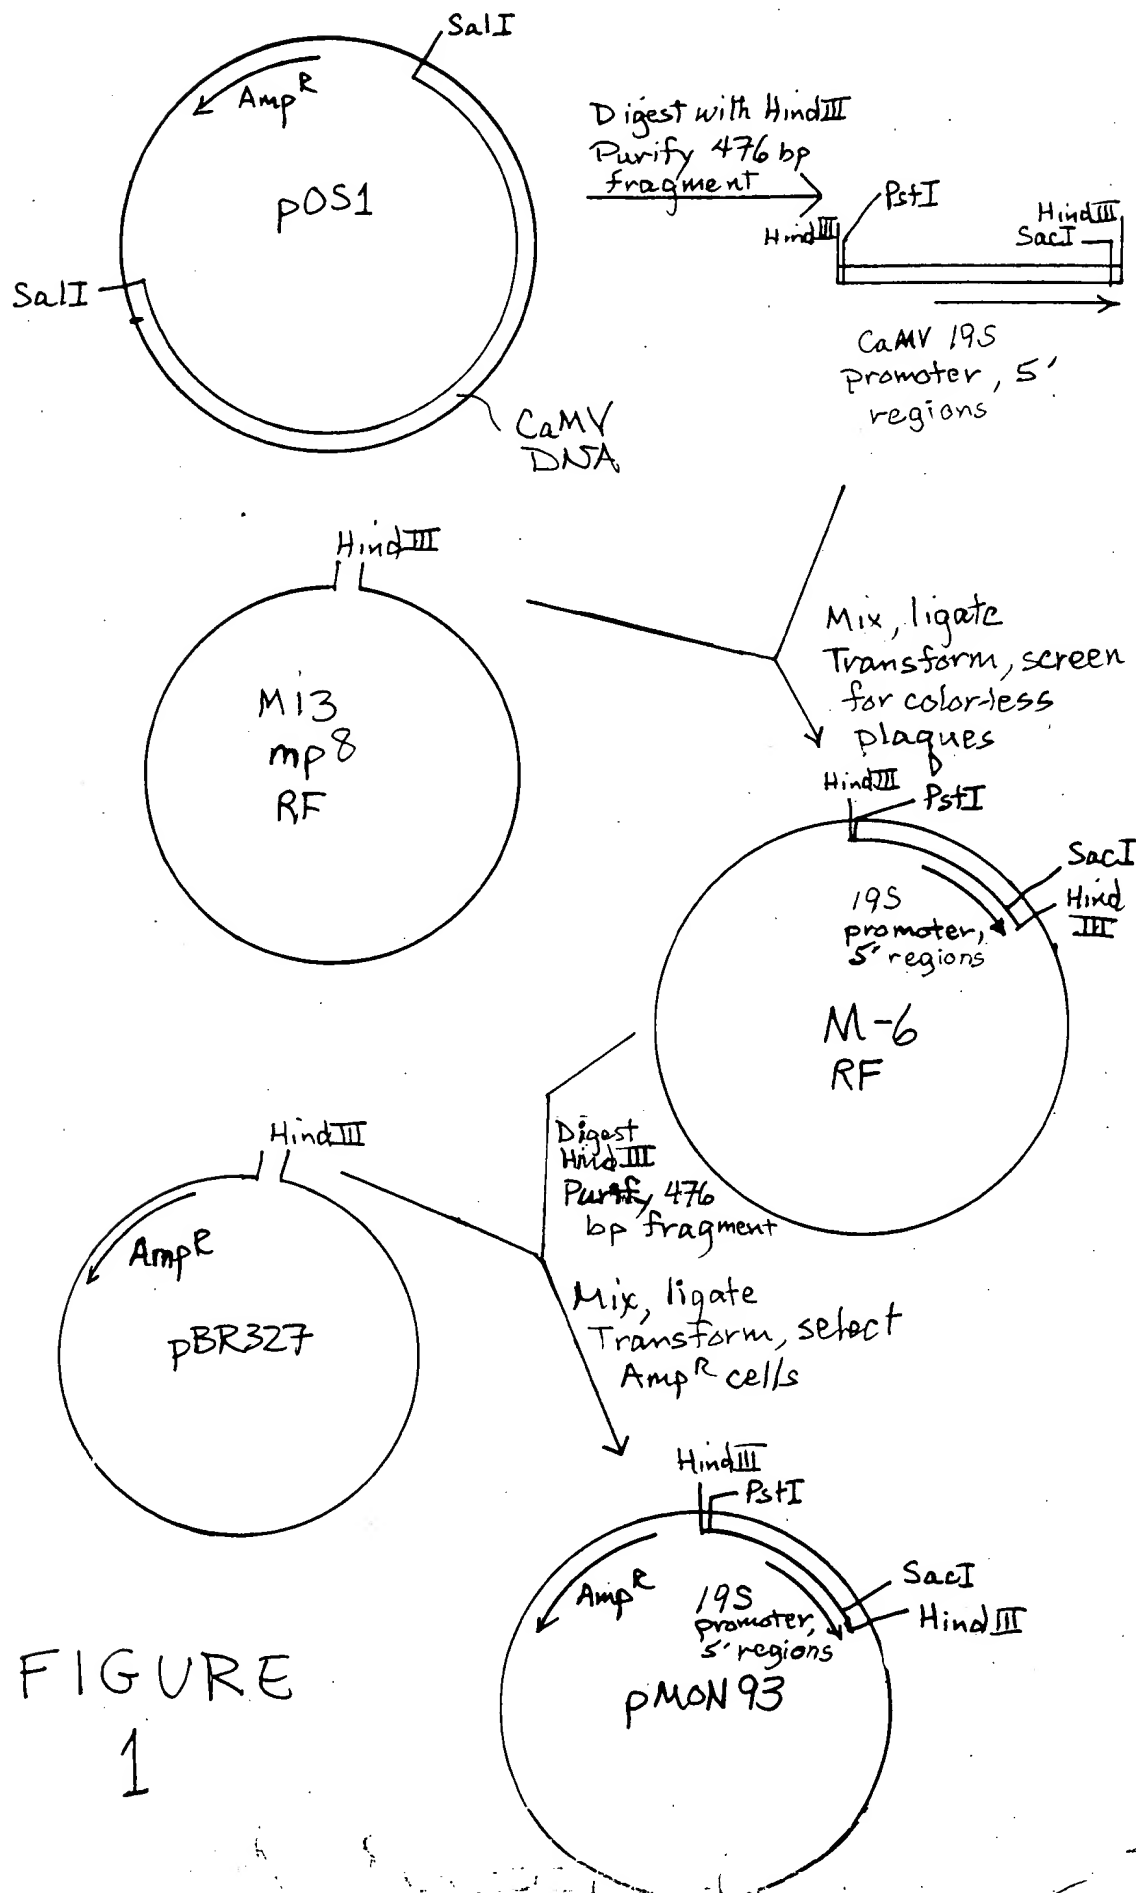 SalI
Amp^R
pOS1
SalI
CaMV
DNA
Digest with HindIII
Purify 476 bp
fragment
PstI
HindIII
HindIII
SacI
CaMV 19S
promoter, 5'
regions
HindIII
M13
mp8
RF
Mix, ligate
Transform, screen
for color-less
plaques
HindIII
PstI
SacI
Hind
III
19S
promoter,
5' regions
M-6
RF
HindIII
Amp^R
pBR327
Digest
HindIII
Purify 476
bp fragment
Mix, ligate
Transform, select
Amp^R cells
HindIII
PstI
Amp^R
19S
promoter,
5' regions
SacI
HindIII
pMON93
FIGURE
1